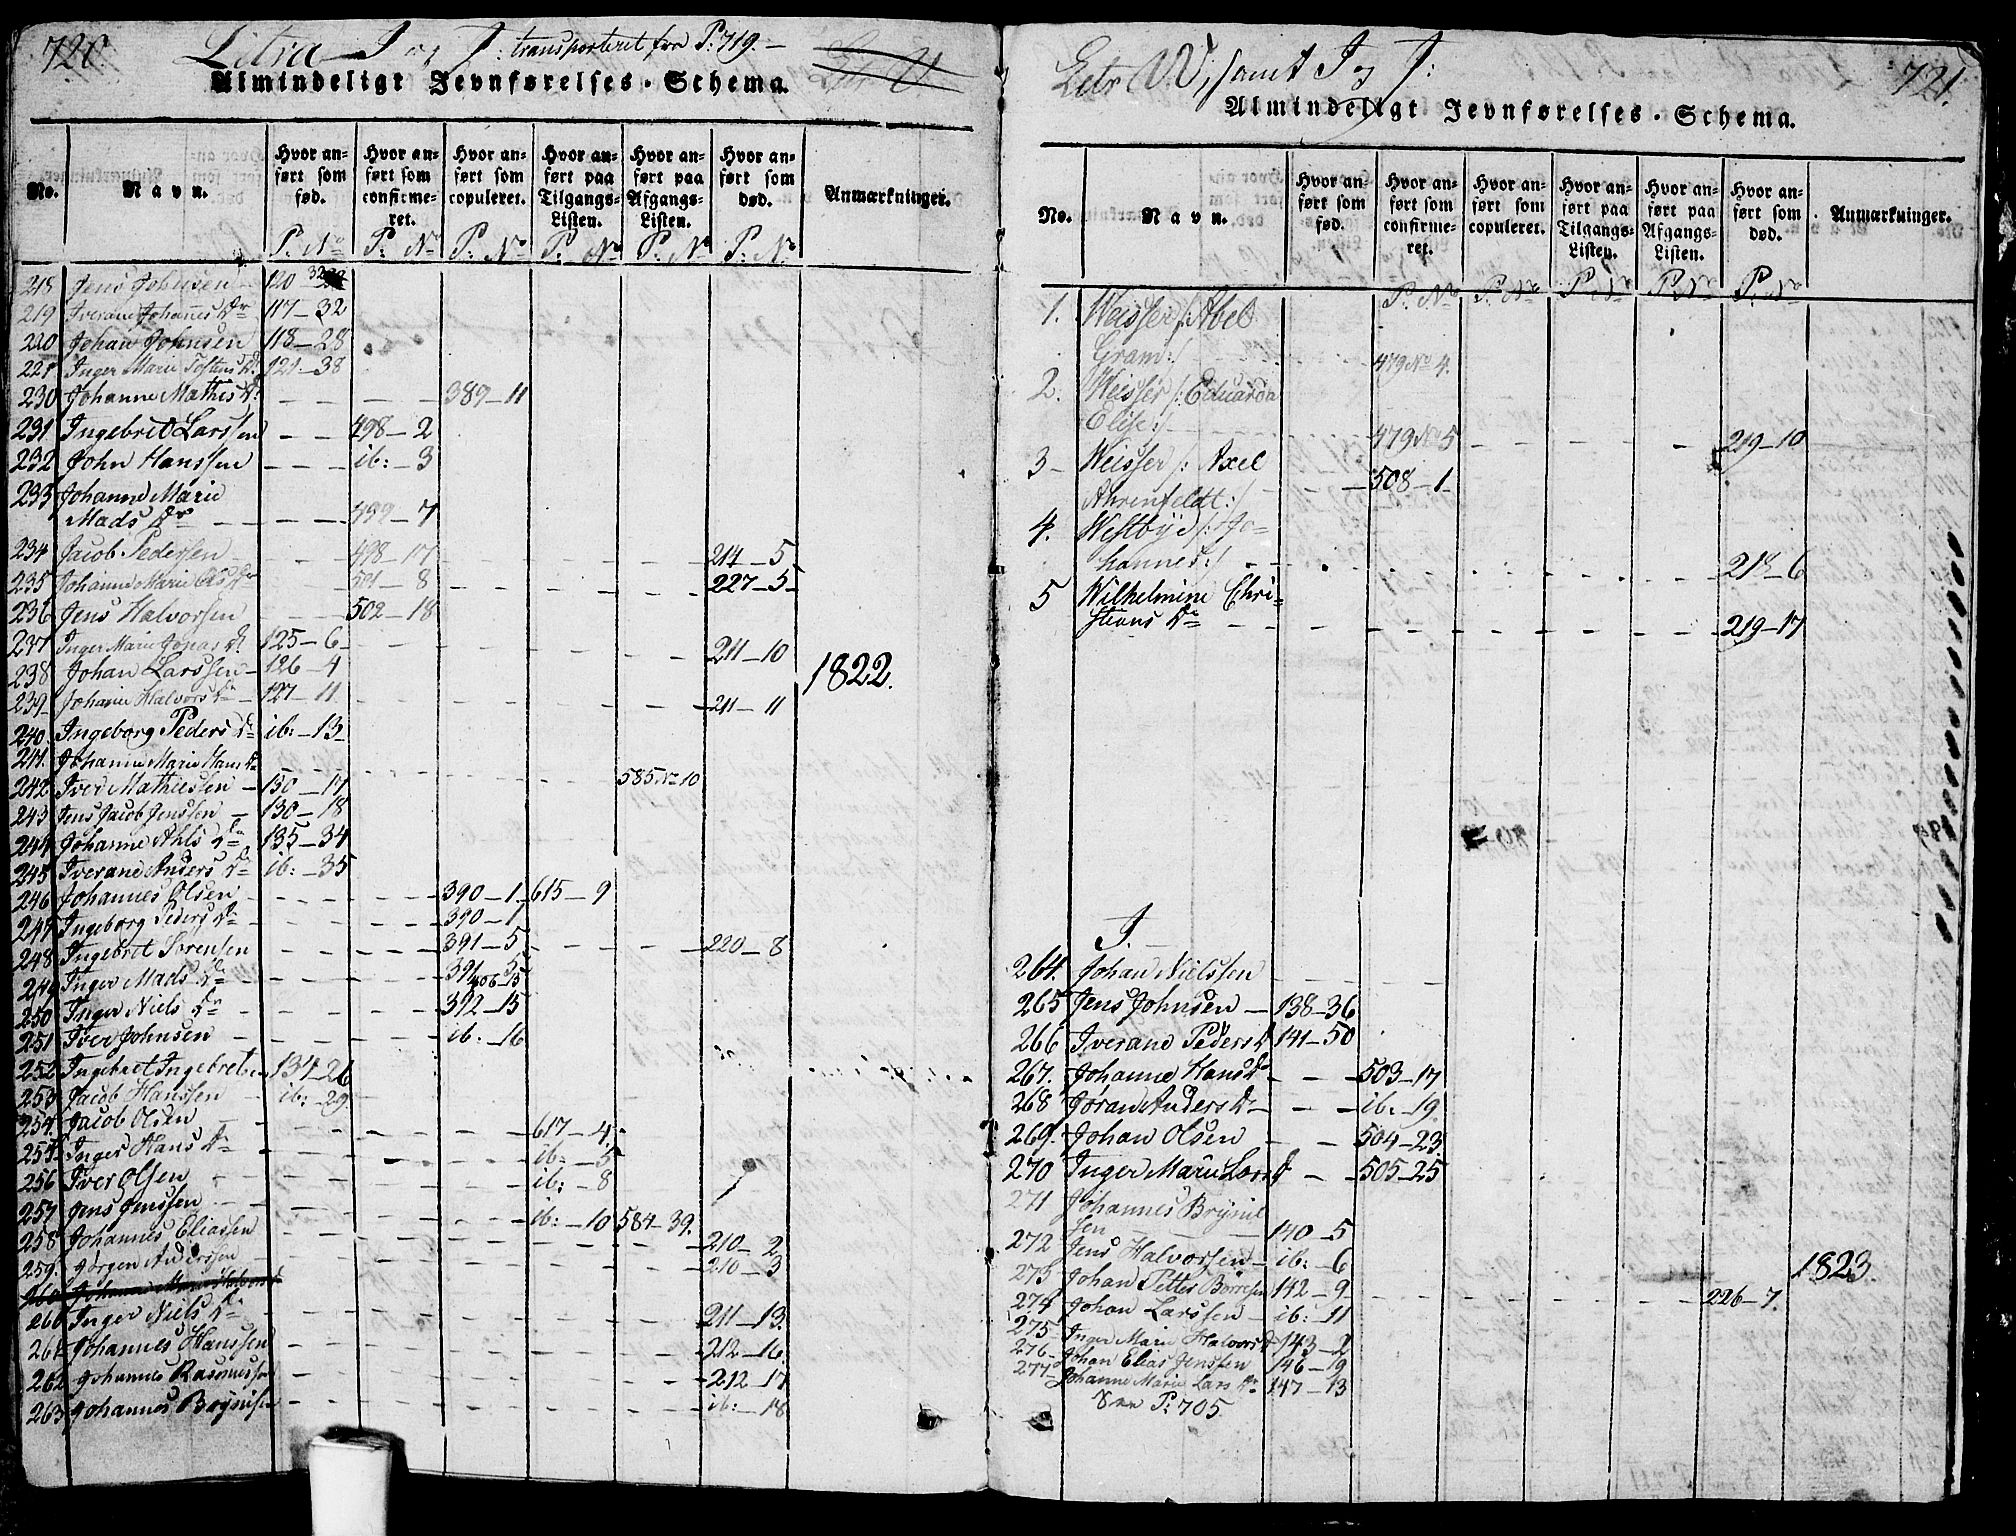 720.
Litra I og J: transporteret fra P: 719.
Almindeligt Jevnførelses-Schema.
No. Navn. Hvor anført som fød. Hvor anført som confirmeret. Hvor anført som copuleret. Hvor anført paa Tilgangs-Listen. Hvor anført paa Afgangs-Listen. Hvor anført som død. Anmærkninger.
P: No P: No P: No P: No P: No P: No
218 Jens Johnsen 120
219 Iverane Johannes Dr 117-32
220 Johan Johnsen 118-28
221 Inger Marie Tostens Dr 121-38
230 Johanne Mathis Dr 389-11
231 Ingebret Larssen 498-2
232 John Hanssen ib:-3
233 Johanne Marie
Mads Dr 499-7
234 Jacob Pedersen 498-17 214-5
235 Johanne Marie Ols Dr 501-8 227-5
236 Jens Halvorsen 502-18
237 Inger Marie Jonas Dr 125-6 211-10
238 Johan Larssen 126-4 1822.
239 Johanne Halvors Dr 127-11 211-11
240. Ingeborg Peders Dr ib:-13
241. Johanne Marie Hans Dr 585 No 10
242 Iver Mathiessen 130-17
243 Jens Jacob Jenssen 130-18
244 Johanne Ahls Dr 135-34
245 Iverane Anders Dr ib:-35
246 Johannes Olsen 390-1 615-9
247 Ingeborg Peders Dr 390-1
248 Ingebret Sørensen 391-5 220-8
249 Inger Mads Dr 391-5 406-15
250 Inger Niels Dr 392-15
251 Iver Johnsen ib:-16
252 Ingebret Ingebretsen 134-26
253 Jacob Hanssen ib:-29
254. Jacob Olsen 617-4
255 Inger Hans Dr ib:-5
256 Iver Olsen ib:-8
257 Jens Jenssen ib:-10 584-39.
258 Johannes Eliassen 210-2
259. Jørgen Anderssen 210-3
260 Johanne Marie Halvors Dr
260 Inger Niels Dr 211-13.
261 Johannes Hanssen 212-16.
262 Johannes Rasmussen 212-17
263 Johannes Brynilsen ib:-18
721.
Letr W. samt I og J:
Almindeligt Jevnførelses-Schema.
No. Navn. Hvor anført som fød. Hvor anført som confirmeret. Hvor anført som copuleret. Hvor anført paa Tilgangs-Listen. Hvor anført paa Afgangs-Listen. Hvor anført som død. Anmærkninger.
P: No P: No P: No P: No P: No
1. Weisser /: Abel
Gram:/ 479 No 4.
2. Weisser /: Eduarda
Elise:/ 479 No 5 219-10
3- Weisser /: Axel 508-1
Ahrenfeldt:/
4. Westbye /: Jo-
hannes:/ 218-6
5 Wilhelmine Chri-
stians Dr 219-17
J.
264. Johan Nielssen
265 Jens Johnsen 138-36
266 Iverane Peders Dr 141-50
267. Johanne Hans Dr 503-17
268 Joran Anders Dr ib:-19
269. Johan Olsen 504-23.
270 Inger Marie Lars Dr 505-25
271 Johannes Brynil
sen 140-5
272 Jens Halvorssen ib:-6 1823.
273 Johan Petter Børresen 142-9 226-7.
274 Johan Larssen ib:-11
275 Inger Marie Halvors Dr 143-2
276 Johan Elias Jenssen 146-19
277 Johanne Marie Lars Dr 147-13
P: 705.